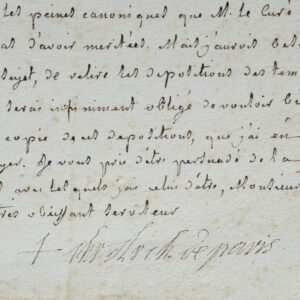 les peines canoniques que M. le Curé
as d'avoir meritées. Mais j'aurois bes
sujet, de relire les depositions des tem
serai infiniment obligé de vouloir b
copie de ces depositions, que j'ai en
yer. Je vous prie d'être persuadé de la
s avec lesquels j'ai celui d'être, Monsieur
tres obéissant serviteur
+ arch. de paris